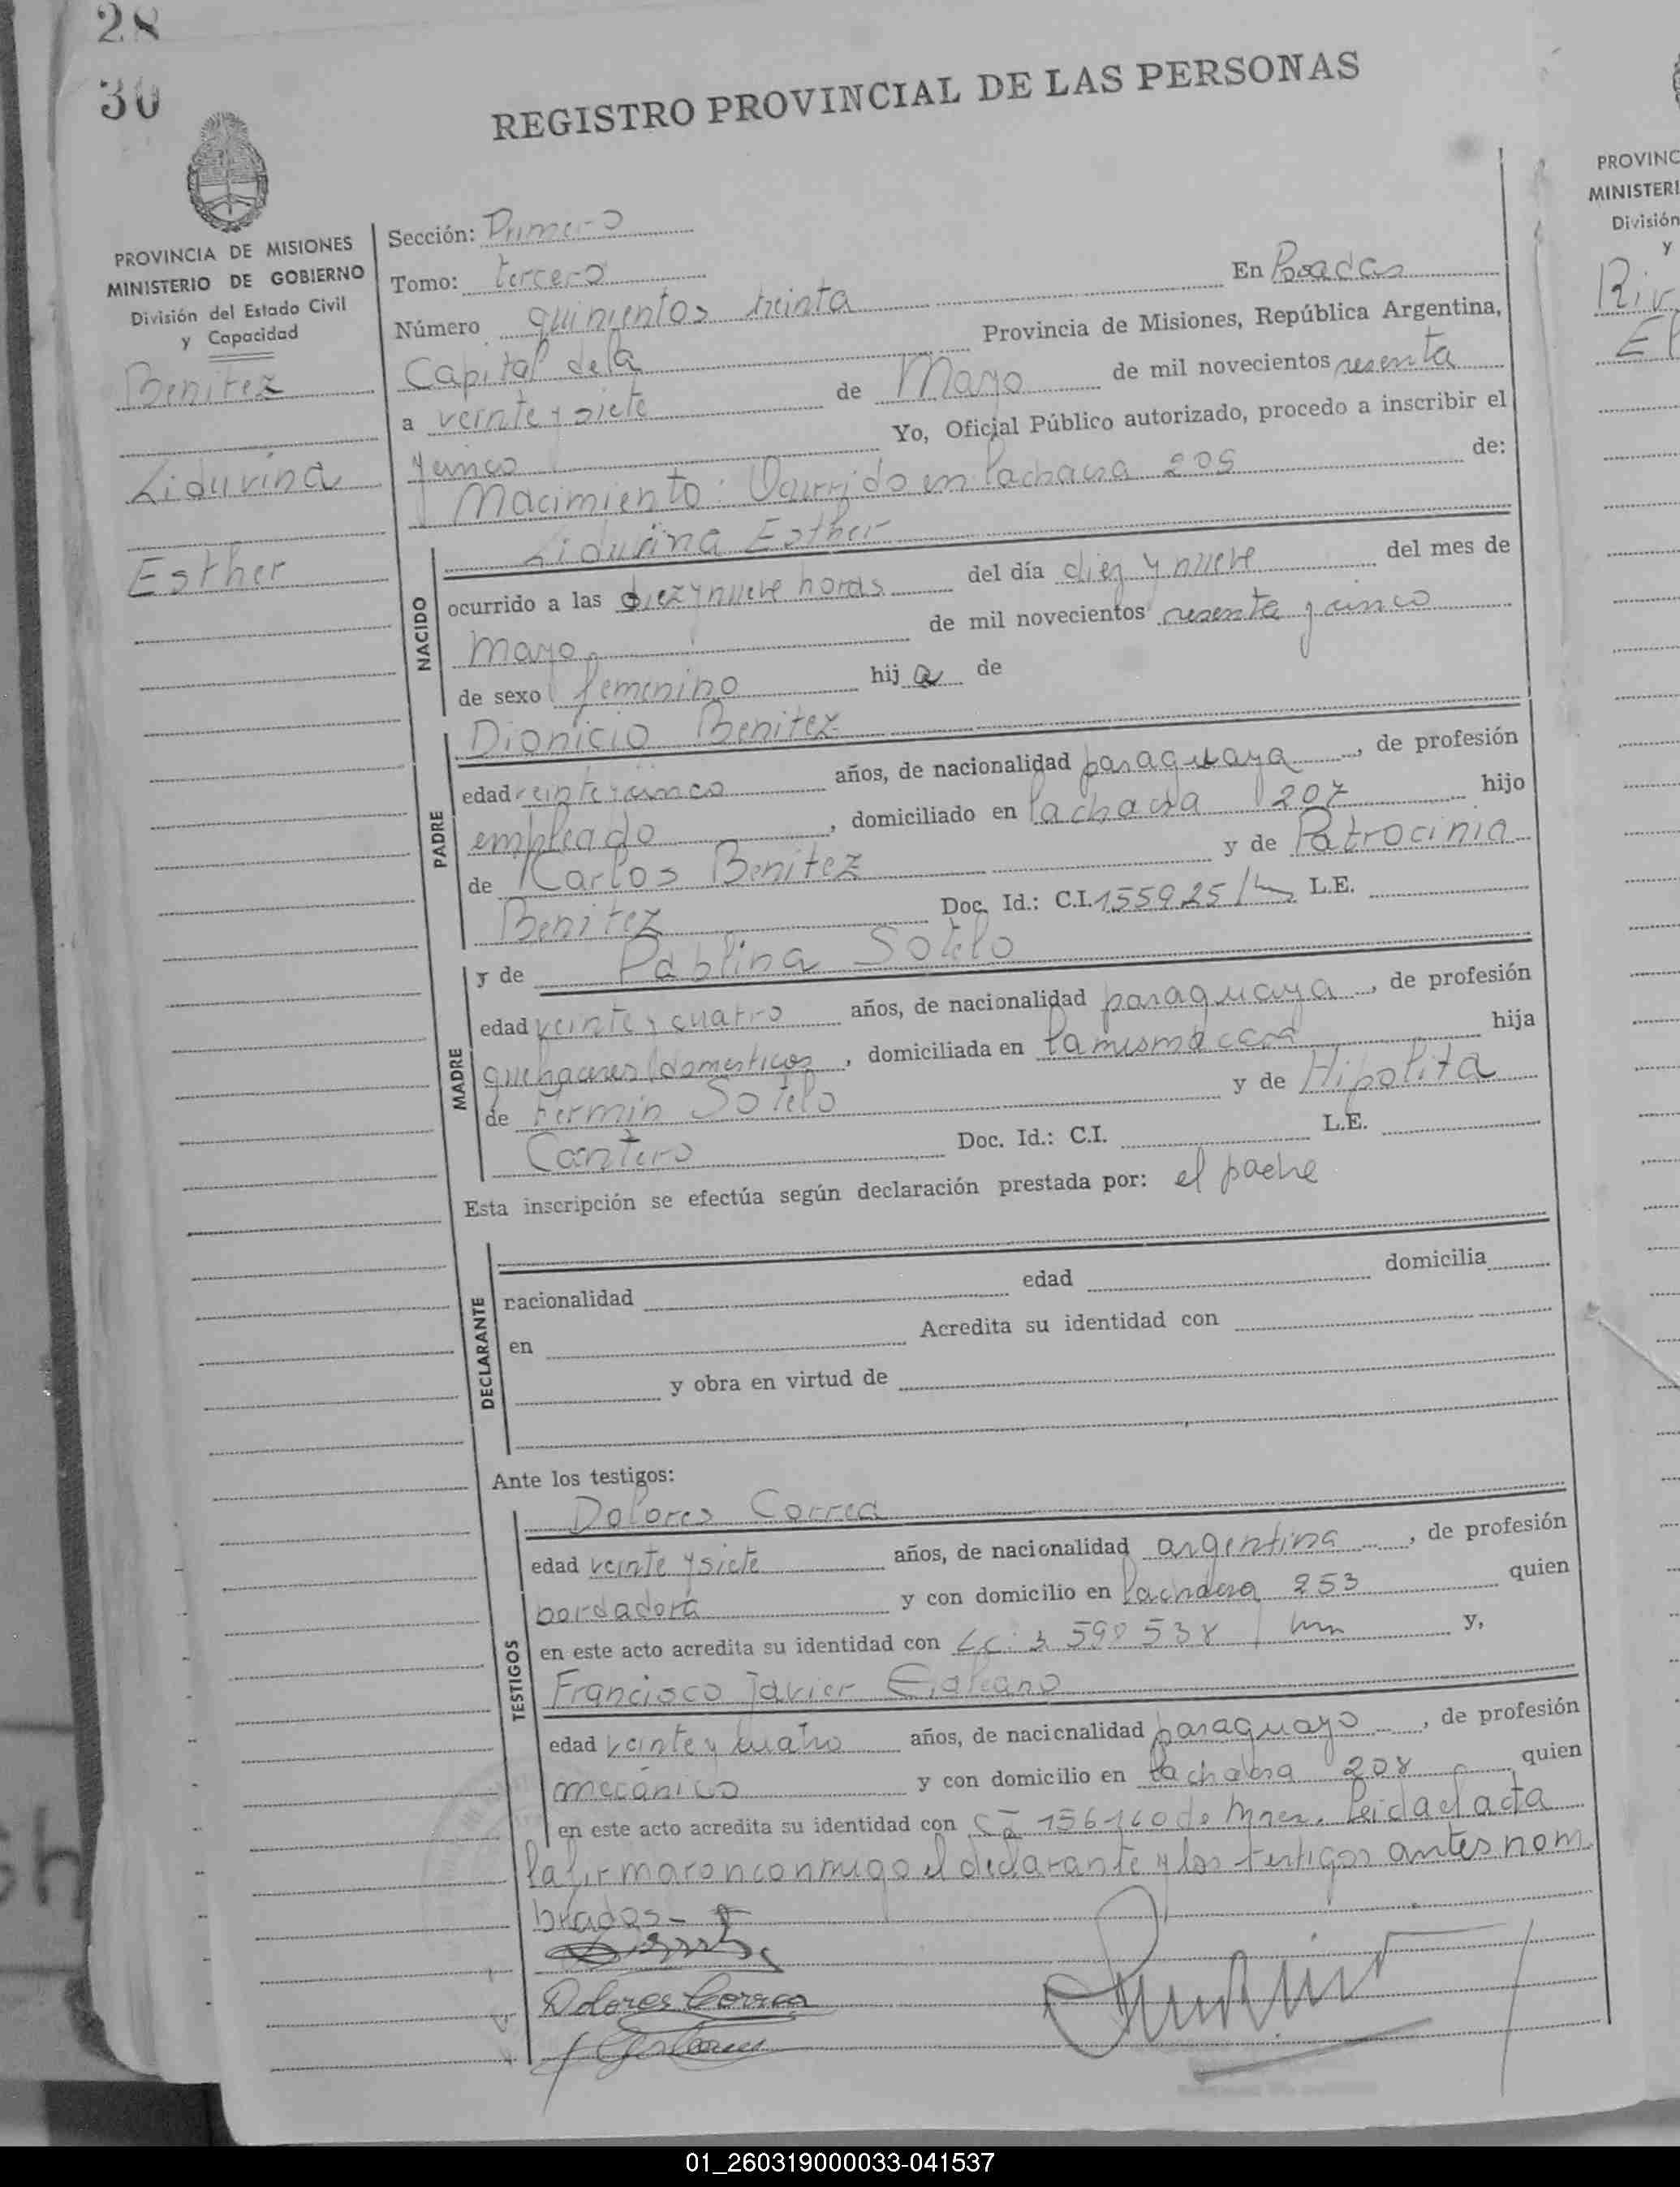 28
30
REGISTRO PROVINCIAL DE LAS PERSONAS
PROVINCIA DE MISIONES
MINISTERIO DE GOBIERNO
División del Estado Civil
y Capacidad
Benitez
Liduvina
Esther
Sección: Primero
Tomo: tercero
Número quinientos treinta En Posadas
Capital de la Provincia de Misiones, República Argentina,
a veinte y siete de Mayo de mil novecientos sesenta
y cinco Yo, Oficial Público autorizado, procedo a inscribir el
Nacimiento: Ocurrido en Lachausa 209 de:
NACIDO
Liduvina Esther
ocurrido a las diez y nueve horas del día diez y nueve del mes de
mayo de mil novecientos sesenta y cinco
de sexo femenino hija de
PADRE
Dionicio Benitez
edad veinte y cinco años, de nacionalidad paraguaya, de profesión
empleado, domiciliado en 207 hijo
de Karlos Benitez y de Patrocinia
Benitez Doc. Id.: C.I. 155925 L.E.
MADRE
y de Pablina Sotelo
edad veinte y cuatro años, de nacionalidad paraguaya, de profesión
quehaceres domesticos, domiciliada en la misma casa hija
de Fermin Sotelo y de Hipolita
Cantero Doc. Id.: C.I. L.E.
Esta inscripción se efectúa según declaración prestada por: el padre
DECLARANTE
nacionalidad edad domicilia
en Acredita su identidad con
y obra en virtud de
Ante los testigos:
TESTIGOS
Dolores Correa
edad veinte y siete años, de nacionalidad argentina, de profesión
bordadora y con domicilio en 253 quien
en este acto acredita su identidad con y,
Francisco Javier Galeano
edad veinte y cuatro años, de nacionalidad paraguayo, de profesión
mecánico y con domicilio en 208 quien
en este acto acredita su identidad con 156160 de Mnes. Leida el acta
la firmaron conmigo el declarante y los testigos antes nom
brados-
Dolores Correa
PROVINC
MINISTERI
División
y
Riv
01_260319000033-041537